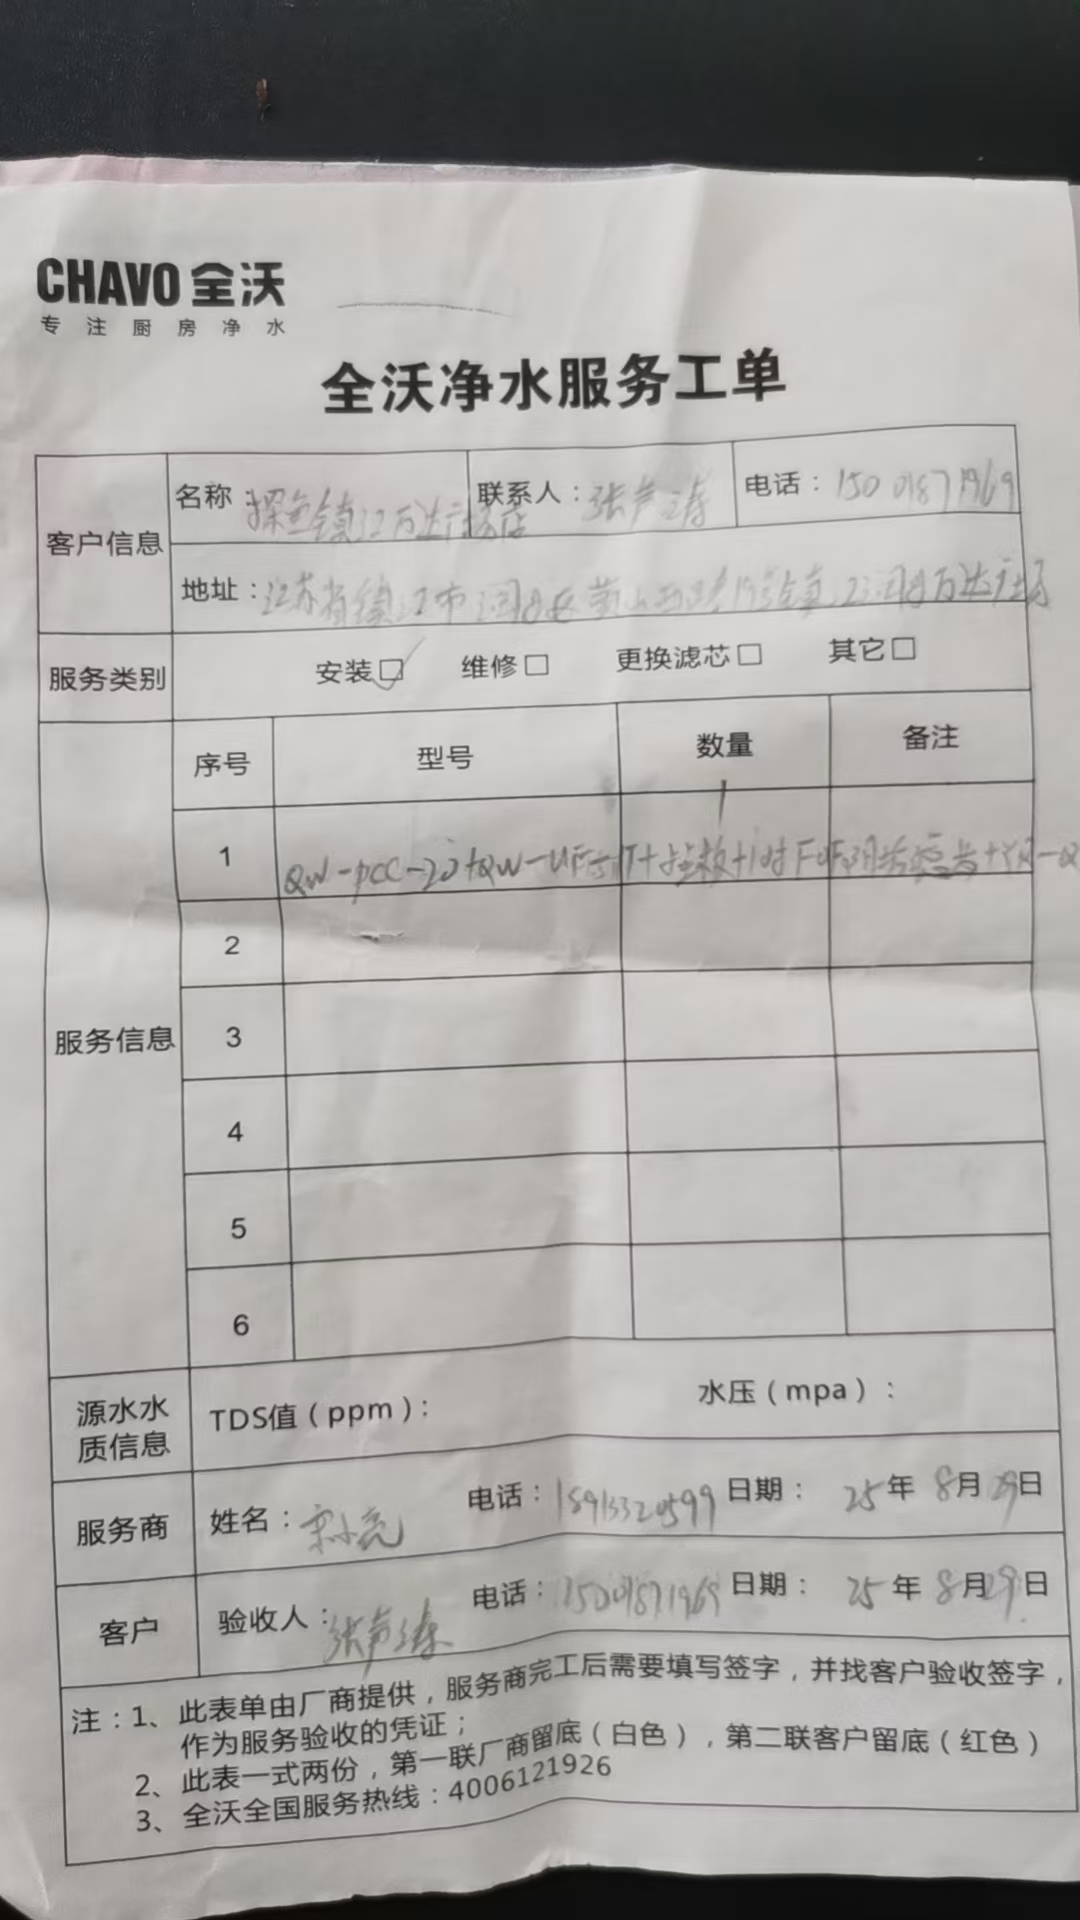 CHAVO 全沃
专注厨房净水
全沃净水服务工单
客户信息
名称：探鱼镇江万达广场店 联系人：张芦涛 电话：15001871969
地址：江苏省镇江市润州区黄山西路19号镇江润州万达广场
服务类别 安装☑ 维修□ 更换滤芯□ 其它□
服务信息
序号 型号 数量 备注
1 QW-PCC-20+QW-UF 1
2
3
4
5
6
源水水质信息 TDS值（ppm）： 水压（mpa）：
服务商 姓名：宋小亮 电话：18913320599 日期： 25年 8月 29日
客户 验收人： 电话：15001871969 日期： 25年 8月 29日
注：1、此表单由厂商提供，服务商完工后需要填写签字，并找客户验收签字，
作为服务验收的凭证；
2、此表一式两份，第一联厂商留底（白色），第二联客户留底（红色）
3、全沃全国服务热线：4006121926